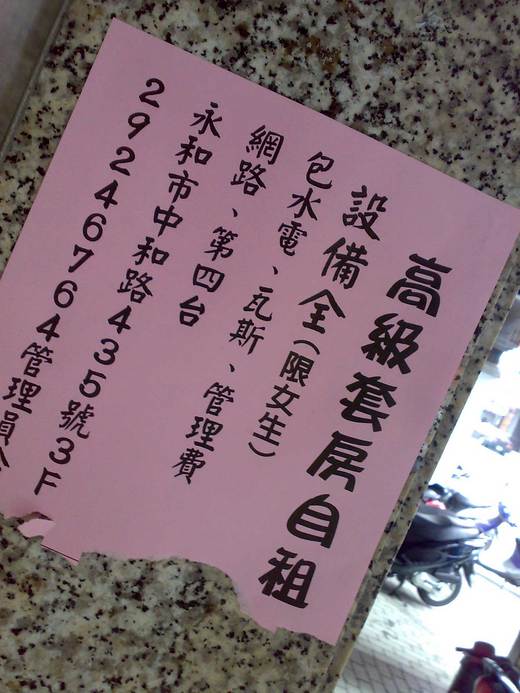 高級套房自租
設備全(限女生)
包水電、瓦斯、管理費
網路、第四台
永和市中和路435號3F
29246764管理員